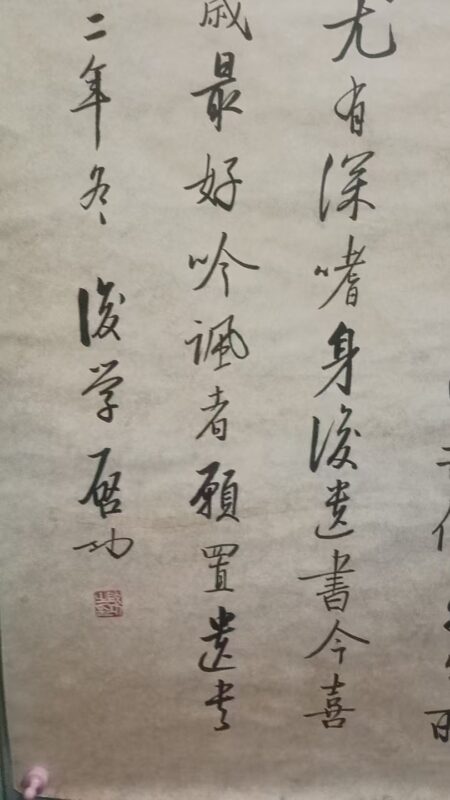 尤有深嗜身後遺書今喜
最好吟諷者願置遺書
二年冬 後学啓功